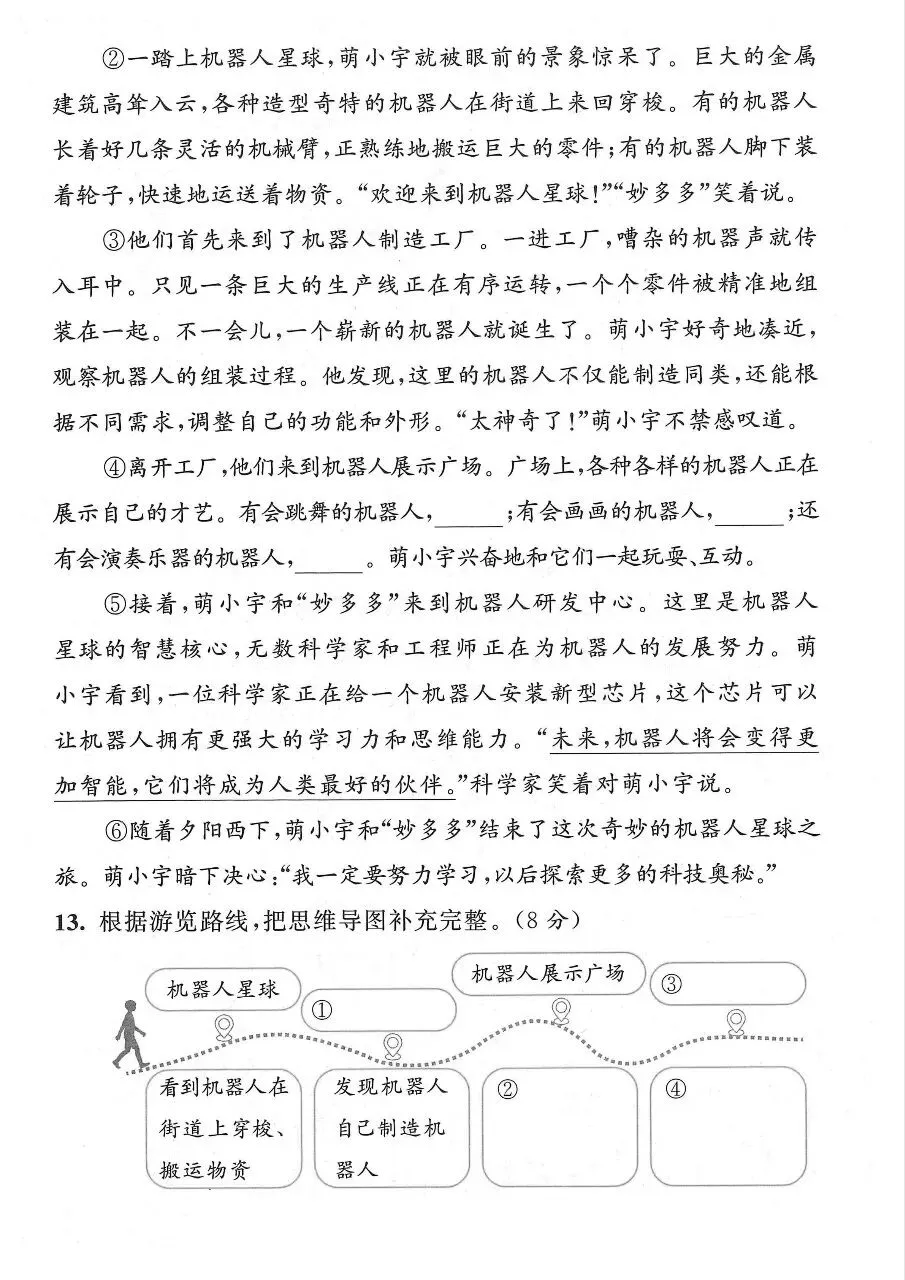 ②一踏上机器人星球,萌小宇就被眼前的景象惊呆了。巨大的金属
建筑高耸入云,各种造型奇特的机器人在街道上来回穿梭。有的机器人
长着好几条灵活的机械臂,正熟练地搬运巨大的零件;有的机器人脚下装
着轮子,快速地运送着物资。“欢迎来到机器人星球!”“妙多多”笑着说。
③他们首先来到了机器人制造工厂。一进工厂,嘈杂的机器声就传
入耳中。只见一条巨大的生产线正在有序运转,一个个零件被精准地组
装在一起。不一会儿,一个崭新的机器人就诞生了。萌小宇好奇地凑近,
观察机器人的组装过程。他发现,这里的机器人不仅能制造同类,还能根
据不同需求,调整自己的功能和外形。“太神奇了!”萌小宇不禁感叹道。
④离开工厂,他们来到机器人展示广场。广场上,各种各样的机器人正在
展示自己的才艺。有会跳舞的机器人,_____;有会画画的机器人,_____;还
有会演奏乐器的机器人,_____。萌小宇兴奋地和它们一起玩耍、互动。
⑤接着,萌小宇和“妙多多”来到机器人研发中心。这里是机器人
星球的智慧核心,无数科学家和工程师正在为机器人的发展努力。萌
小宇看到,一位科学家正在给一个机器人安装新型芯片,这个芯片可以
让机器人拥有更强大的学习力和思维能力。“未来,机器人将会变得更
加智能,它们将成为人类最好的伙伴。”科学家笑着对萌小宇说。
⑥随着夕阳西下,萌小宇和“妙多多”结束了这次奇妙的机器人星球之
旅。萌小宇暗下决心:“我一定要努力学习,以后探索更多的科技奥秘。”
13. 根据游览路线,把思维导图补充完整。(8分)
机器人星球
①
机器人展示广场
③
看到机器人在
街道上穿梭、
搬运物资
发现机器人
自己制造机
器人
②
④